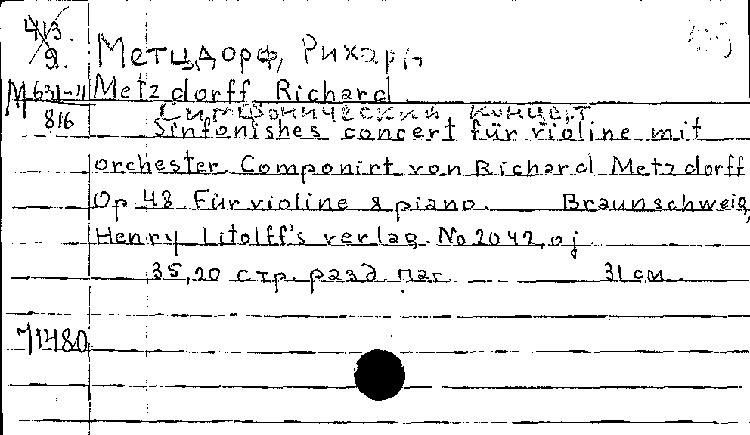 413.
9. Метцдорф, Рихард
М 631-11 Metzdorff Richard
816 Симфонический концерт
Sinfonishes concert für violine mit
orchester Componirt von Richard Metzdorff
Op 48 Für violine & piano. Braunschweig,
Henry Litolff's verlag. No 2042, oj
35, 20 стр. разд. паг. 31 см.
71480